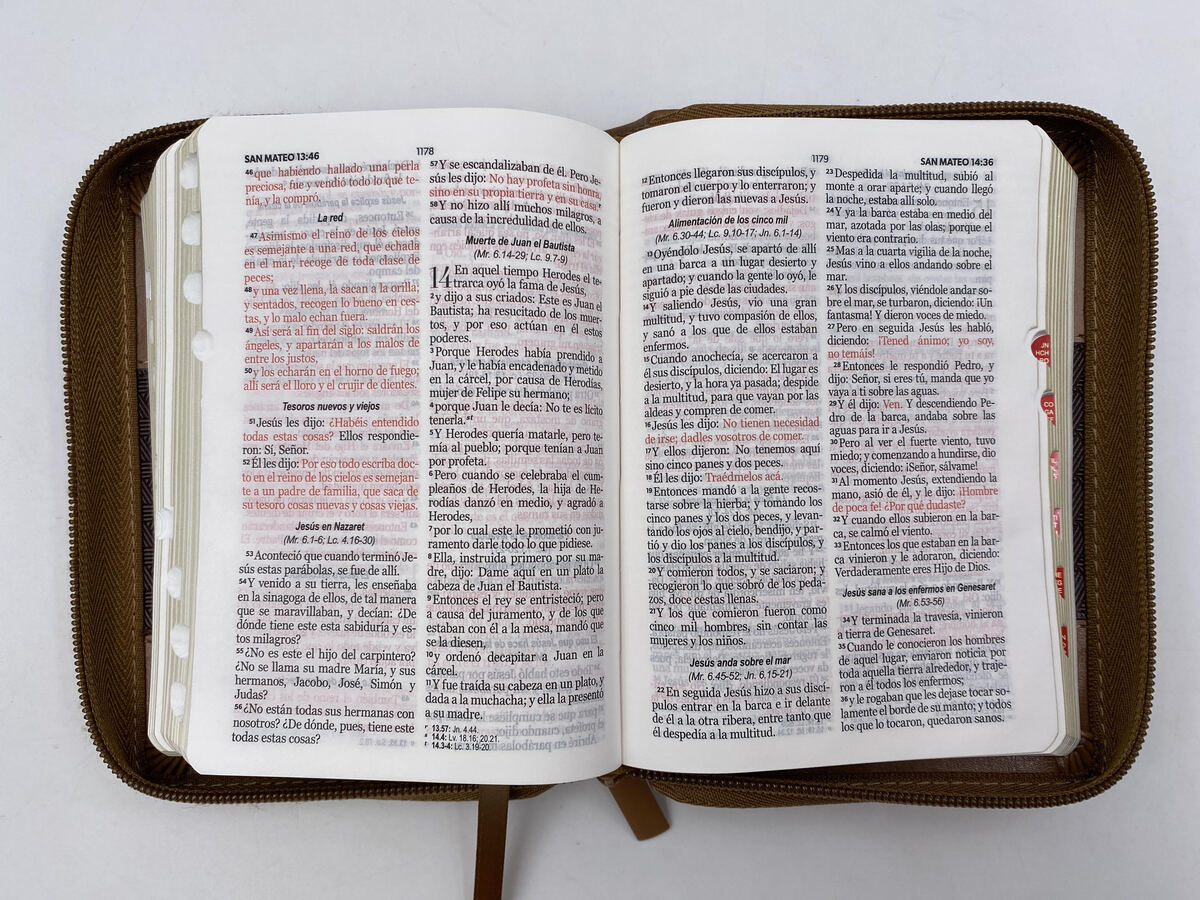 SAN MATEO 13:46
1178
46 que habiendo hallado una perla
preciosa, fue y vendió todo lo que te-
nía, y la compró.
La red
47 Asimismo el reino de los cielos
es semejante a una red, que echada
en el mar, recoge de toda clase de
peces;
48 y una vez llena, la sacan a la orilla;
y sentados, recogen lo bueno en ces-
tas, y lo malo echan fuera.
49 Así será al fin del siglo: saldrán los
ángeles, y apartarán a los malos de
entre los justos,
50 y los echarán en el horno de fuego;
allí será el lloro y el crujir de dientes.
Tesoros nuevos y viejos
51 Jesús les dijo: ¿Habéis entendido
todas estas cosas? Ellos respondie-
ron: Sí, Señor.
52 Él les dijo: Por eso todo escriba doc-
to en el reino de los cielos es semejan-
te a un padre de familia, que saca de
su tesoro cosas nuevas y cosas viejas.
Jesús en Nazaret
(Mr. 6.1-6; Lc. 4.16-30)
53 Aconteció que cuando terminó Je-
sús estas parábolas, se fue de allí.
54 Y venido a su tierra, les enseñaba
en la sinagoga de ellos, de tal manera
que se maravillaban, y decían: ¿De
dónde tiene este esta sabiduría y es-
tos milagros?
55 ¿No es este el hijo del carpintero?
¿No se llama su madre María, y sus
hermanos, Jacobo, José, Simón y
Judas?
56 ¿No están todas sus hermanas con
nosotros? ¿De dónde, pues, tiene este
todas estas cosas?
57 Y se escandalizaban de él. Pero Je-
sús les dijo: No hay profeta sin honra,
sino en su propia tierra y en su casa.r
58 Y no hizo allí muchos milagros, a
causa de la incredulidad de ellos.
Muerte de Juan el Bautista
(Mr. 6.14-29; Lc. 9.7-9)
14 En aquel tiempo Herodes el te-
trarca oyó la fama de Jesús,
2 y dijo a sus criados: Este es Juan el
Bautista; ha resucitado de los muer-
tos, y por eso actúan en él estos
poderes.
3 Porque Herodes había prendido a
Juan, y le había encadenado y metido
en la cárcel, por causa de Herodías,
mujer de Felipe su hermano;
4 porque Juan le decía: No te es lícito
tenerla.st
5 Y Herodes quería matarle, pero te-
mía al pueblo; porque tenían a Juan
por profeta.
6 Pero cuando se celebraba el cum-
pleaños de Herodes, la hija de He-
rodías danzó en medio, y agradó a
Herodes,
7 por lo cual este le prometió con ju-
ramento darle todo lo que pidiese.
8 Ella, instruida primero por su ma-
dre, dijo: Dame aquí en un plato la
cabeza de Juan el Bautista.
9 Entonces el rey se entristeció; pero
a causa del juramento, y de los que
estaban con él a la mesa, mandó que
se la diesen,
10 y ordenó decapitar a Juan en la
cárcel.
11 Y fue traída su cabeza en un plato, y
dada a la muchacha; y ella la presentó
a su madre.
r 13.57: Jn. 4.44.
14.4: Lv. 18.16; 20.21.
14.3-4: Lc. 3.19-20.
1179
SAN MATEO 14:36
12 Entonces llegaron sus discípulos, y
tomaron el cuerpo y lo enterraron; y
fueron y dieron las nuevas a Jesús.
Alimentación de los cinco mil
(Mr. 6.30-44; Lc. 9.10-17; Jn. 6.1-14)
13 Oyéndolo Jesús, se apartó de allí
en una barca a un lugar desierto y
apartado; y cuando la gente lo oyó, le
siguió a pie desde las ciudades.
14 Y saliendo Jesús, vio una gran
multitud, y tuvo compasión de ellos,
y sanó a los que de ellos estaban
enfermos.
15 Cuando anochecía, se acercaron a
él sus discípulos, diciendo: El lugar es
desierto, y la hora ya pasada; despide
a la multitud, para que vayan por las
aldeas y compren de comer.
16 Jesús les dijo: No tienen necesidad
de irse; dadles vosotros de comer.
17 Y ellos dijeron: No tenemos aquí
sino cinco panes y dos peces.
18 Él les dijo: Traédmelos acá.
19 Entonces mandó a la gente recos-
tarse sobre la hierba; y tomando los
cinco panes y los dos peces, y levan-
tando los ojos al cielo, bendijo, y par-
tió y dio los panes a los discípulos, y
los discípulos a la multitud.
20 Y comieron todos, y se saciaron; y
recogieron lo que sobró de los peda-
zos, doce cestas llenas.
21 Y los que comieron fueron como
cinco mil hombres, sin contar las
mujeres y los niños.
Jesús anda sobre el mar
(Mr. 6.45-52; Jn. 6.15-21)
22 En seguida Jesús hizo a sus discí-
pulos entrar en la barca e ir delante
de él a la otra ribera, entre tanto que
él despedía a la multitud.
23 Despedida la multitud, subió al
monte a orar aparte; y cuando llegó
la noche, estaba allí solo.
24 Y ya la barca estaba en medio del
mar, azotada por las olas; porque el
viento era contrario.
25 Mas a la cuarta vigilia de la noche,
Jesús vino a ellos andando sobre el
mar.
26 Y los discípulos, viéndole andar so-
bre el mar, se turbaron, diciendo: ¡Un
fantasma! Y dieron voces de miedo.
27 Pero en seguida Jesús les habló,
diciendo: ¡Tened ánimo; yo soy,
no temáis!
28 Entonces le respondió Pedro, y
dijo: Señor, si eres tú, manda que yo
vaya a ti sobre las aguas.
29 Y él dijo: Ven. Y descendiendo Pe-
dro de la barca, andaba sobre las
aguas para ir a Jesús.
30 Pero al ver el fuerte viento, tuvo
miedo; y comenzando a hundirse, dio
voces, diciendo: ¡Señor, sálvame!
31 Al momento Jesús, extendiendo la
mano, asió de él, y le dijo: ¡Hombre
de poca fe! ¿Por qué dudaste?
32 Y cuando ellos subieron en la bar-
ca, se calmó el viento.
33 Entonces los que estaban en la bar-
ca vinieron y le adoraron, diciendo:
Verdaderamente eres Hijo de Dios.
Jesús sana a los enfermos en Genesaret
(Mr. 6.53-56)
34 Y terminada la travesía, vinieron
a tierra de Genesaret.
35 Cuando le conocieron los hombres
de aquel lugar, enviaron noticia por
toda aquella tierra alrededor, y traje-
ron a él todos los enfermos;
36 y le rogaban que les dejase tocar so-
lamente el borde de su manto; y todos
los que lo tocaron, quedaron sanos.
JN
HCH
RO
CO